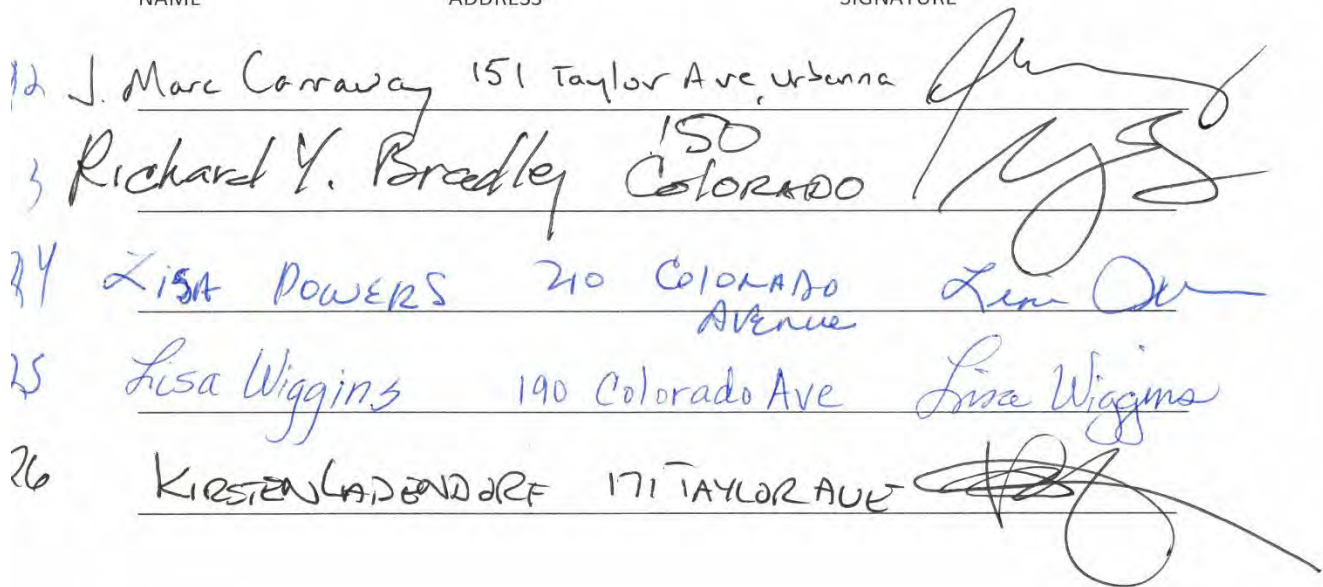 NAME ADDRESS SIGNATURE
J. Marc Carraway 151 Taylor Ave, Urbanna
Richard Y. Bradley 150 COLORADO
24 LISA POWERS 210 COLORADO AVENUE
25 Lisa Wiggins 190 Colorado Ave Lisa Wiggins
26 KIRSTEN LADENDORF 171 TAYLOR AVE